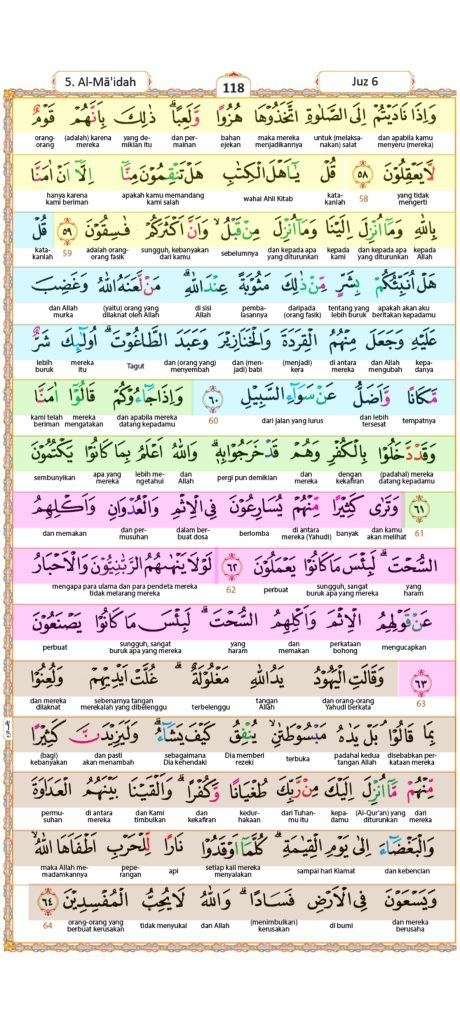 5. Al-Mā'idah 118 Juz 6
وَاِذَا نَادَيْتُمْ اِلَى الصَّلٰوةِ اتَّخَذُوْهَا هُزُوًا وَّلَعِبًا ۗ ذٰلِكَ بِاَنَّهُمْ قَوْمٌ
orang- (adalah) karena yang de- dan per- bahan maka mereka untuk (melaksa- dan apabila kamu
orang mereka mikian itu mainan ejekan menjadikannya nakan) salat menyeru (mereka)
لَّا يَعْقِلُوْنَ ٥٨ قُلْ يٰٓاَهْلَ الْكِتٰبِ هَلْ تَنْقِمُوْنَ مِنَّآ اِلَّآ اَنْ اٰمَنَّا
hanya karena apakah kamu memandang wahai Ahli Kitab kata- 58 yang tidak
kami beriman kami salah kanlah mengerti
بِاللّٰهِ وَمَآ اُنْزِلَ اِلَيْنَا وَمَآ اُنْزِلَ مِنْ قَبْلُ ۙ وَاَنَّ اَكْثَرَكُمْ فٰسِقُوْنَ ٥٩ قُلْ
kata- 59 adalah orang- sungguh, kebanyakan sebelumnya dan kepada apa kepada dan kepada apa kepada
kanlah orang fasik dari kamu yang diturunkan kami yang diturunkan Allah
هَلْ اُنَبِّئُكُمْ بِشَرٍّ مِّنْ ذٰلِكَ مَثُوْبَةً عِنْدَ اللّٰهِ ۗ مَنْ لَّعَنَهُ اللّٰهُ وَغَضِبَ
dan Allah (yaitu) orang yang di sisi pemba- daripada tentang yang apakah akan aku
murka dilaknat oleh Allah Allah lasannya (orang fasik) lebih buruk beritakan kepadamu
عَلَيْهِ وَجَعَلَ مِنْهُمُ الْقِرَدَةَ وَالْخَنَازِيْرَ وَعَبَدَ الطَّاغُوْتَ ۗ اُولٰۤىِٕكَ شَرٌّ
lebih mereka Tagut dan (orang yang) dan (men- (menjadi) di antara dan Allah kepa-
buruk itu menyembah jadi) babi kera mereka mengubah danya
مَّكَانًا وَّاَضَلُّ عَنْ سَوَاۤءِ السَّبِيْلِ ٦٠ وَاِذَا جَاۤءُوْكُمْ قَالُوْٓا اٰمَنَّا
kami telah mereka dan apabila mereka 60 dari jalan yang lurus dan lebih tempatnya
beriman mengatakan datang kepadamu tersesat
وَقَدْ دَّخَلُوْا بِالْكُفْرِ وَهُمْ قَدْ خَرَجُوْا بِهٖ ۗ وَاللّٰهُ اَعْلَمُ بِمَا كَانُوْا يَكْتُمُوْنَ
sembunyikan apa yang lebih me- dan pergi pun demikian dan dengan (padahal) mereka
mereka ngetahui Allah mereka kekafiran datang kepadamu
٦١ وَتَرٰى كَثِيْرًا مِّنْهُمْ يُسَارِعُوْنَ فِى الْاِثْمِ وَالْعُدْوَانِ وَاَكْلِهِمُ
dan memakan dan per- dalam ber- berlomba di antara banyak dan kamu 61
musuhan buat dosa mereka (Yahudi) akan melihat
السُّحْتَ ۗ لَبِئْسَ مَا كَانُوْا يَعْمَلُوْنَ ٦٢ لَوْلَا يَنْهٰىهُمُ الرَّبّٰنِيُّوْنَ وَالْاَحْبَارُ
mengapa para ulama dan para pendeta mereka 62 perbuat sungguh, sangat yang
tidak melarang mereka buruk apa yang mereka haram
عَنْ قَوْلِهِمُ الْاِثْمَ وَاَكْلِهِمُ السُّحْتَ ۗ لَبِئْسَ مَا كَانُوْا يَصْنَعُوْنَ
perbuat sungguh, sangat yang dan perkataan mengucapkan
buruk apa yang mereka haram memakan bohong
٦٣ وَقَالَتِ الْيَهُوْدُ يَدُ اللّٰهِ مَغْلُوْلَةٌ ۗ غُلَّتْ اَيْدِيْهِمْ وَلُعِنُوْا
dan mereka sebenarnya tangan terbelenggu tangan dan orang-orang 63
dilaknat merekalah yang dibelenggu Allah Yahudi berkata
بِمَا قَالُوْا ۘ بَلْ يَدٰهُ مَبْسُوْطَتٰنِ ۙ يُنْفِقُ كَيْفَ يَشَاۤءُ ۗ وَلَيَزِيْدَنَّ كَثِيْرًا
(bagi) dan pasti sebagaimana Dia memberi terbuka padahal kedua disebabkan per-
kebanyakan akan menambah Dia kehendaki rezeki tangan Allah kataan mereka
مِّنْهُمْ مَّآ اُنْزِلَ اِلَيْكَ مِنْ رَّبِّكَ طُغْيَانًا وَّكُفْرًا ۗ وَاَلْقَيْنَا بَيْنَهُمُ الْعَدَاوَةَ
permu- di antara dan Kami dan kedur- dari Tuhan- kepa- (Al-Qur'an) yang dari
suhan mereka timbulkan kekafiran hakaan mu itu damu diturunkan mereka
وَالْبَغْضَاۤءَ اِلٰى يَوْمِ الْقِيٰمَةِ ۗ كُلَّمَآ اَوْقَدُوْا نَارًا لِّلْحَرْبِ اَطْفَاَهَا اللّٰهُ ۙ
maka Allah me- pepe- api setiap kali mereka sampai hari Kiamat dan kebencian
madamkannya rangan menyalakan
وَيَسْعَوْنَ فِى الْاَرْضِ فَسَادًا ۗ وَاللّٰهُ لَا يُحِبُّ الْمُفْسِدِيْنَ ٦٤
64 orang-orang yang tidak menyukai dan Allah (menimbulkan) di bumi dan mereka
berbuat kerusakan kerusakan berusaha